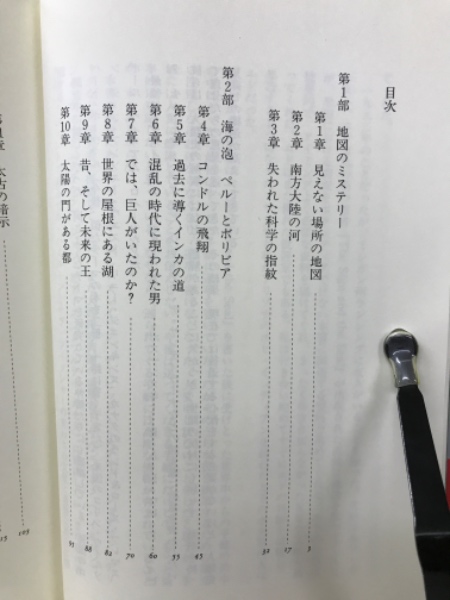 目次
第1部 地図のミステリー
第1章 見えない場所の地図 3
第2章 南方大陸の河 17
第3章 失われた科学の指紋 32
第2部 海の泡 ペルーとボリビア
第4章 コンドルの飛翔 45
第5章 過去に導くインカの道 55
第6章 混乱の時代に現われた男 60
第7章 では、巨人がいたのか? 70
第8章 世界の屋根にある湖 82
第9章 昔、そして未来の王 88
第10章 太陽の門がある都 95
太古の暗示 105